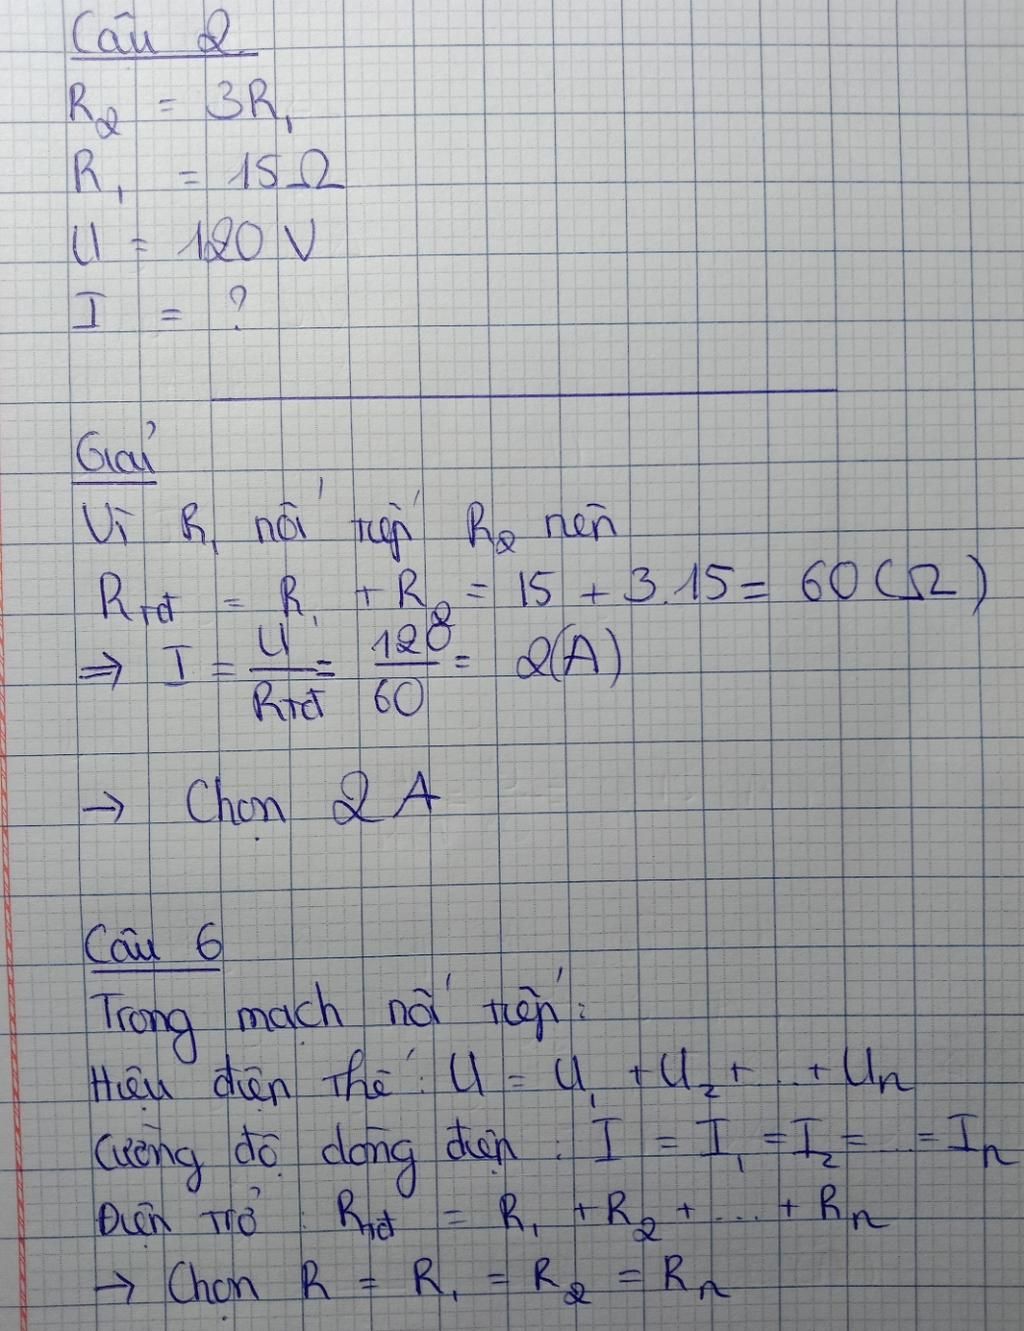 Câu 2
R₂ = 3R₁
R₁ = 15Ω
U = 120 V
I = ?
Giải
Vì R₁ nối tiếp R₂ nên
Rtđ = R₁ + R₂ = 15 + 3.15 = 60 (Ω)
⇒ I = U/Rtđ = 120/60 = 2(A)
→ Chọn 2 A
Câu 6
Trong mạch nối tiếp:
Hiệu điện thế: U = U₁ + U₂ + ... + Un
Cường độ dòng điện : I = I₁ = I₂ = ... = In
Điện trở : Rtđ = R₁ + R₂ + ... + Rn
→ Chọn R = R₁ = R₂ = Rn